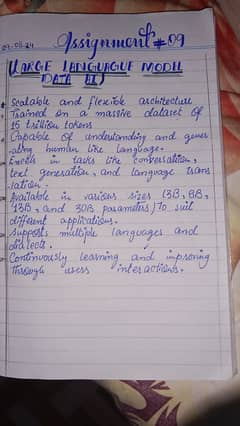 Assignment #09
(LARGE LANGUAGUE MODEL
DATA AI)
Scalable and flexible architecture
Trained on a massive dataset of
15 trillion tokens
Capable of understanding and gener
ating human like language.
Excels in tasks like conversation,
text generation, and language trans
lation.
Available in various sizes (3B, 8B,
13B, and 30B parameters) to suit
different applications.
Supports multiple languages and
dialects.
Continuously learning and improving
through users interactions.